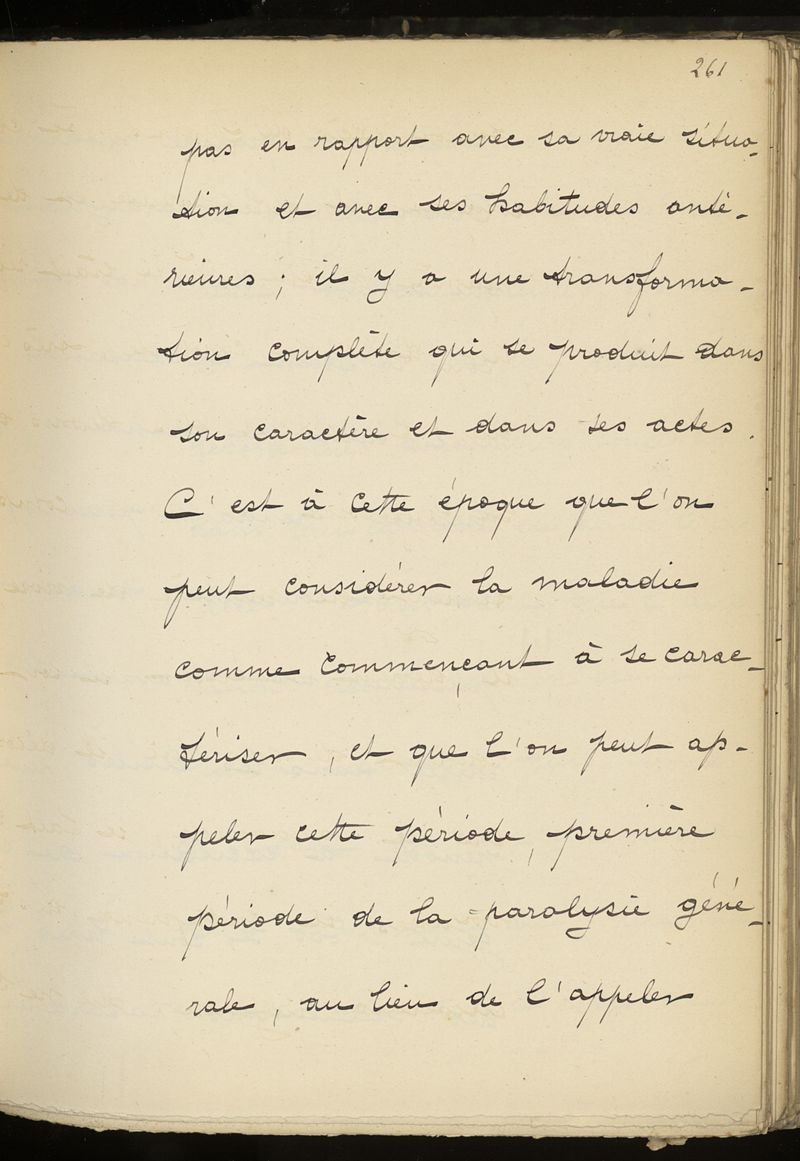 261
pas en rapport avec sa vraie situa-
tion et avec ses habitudes anté-
rieures ; il y a une transforma-
tion complète qui se produit dans
son caractère et dans ses actes.
C'est à cette époque que l'on
peut considérer la maladie
comme commençant à se carac-
tériser, et que l'on peut ap-
peler cette période, première
période de la paralysie géné-
rale, au lieu de l'appeler